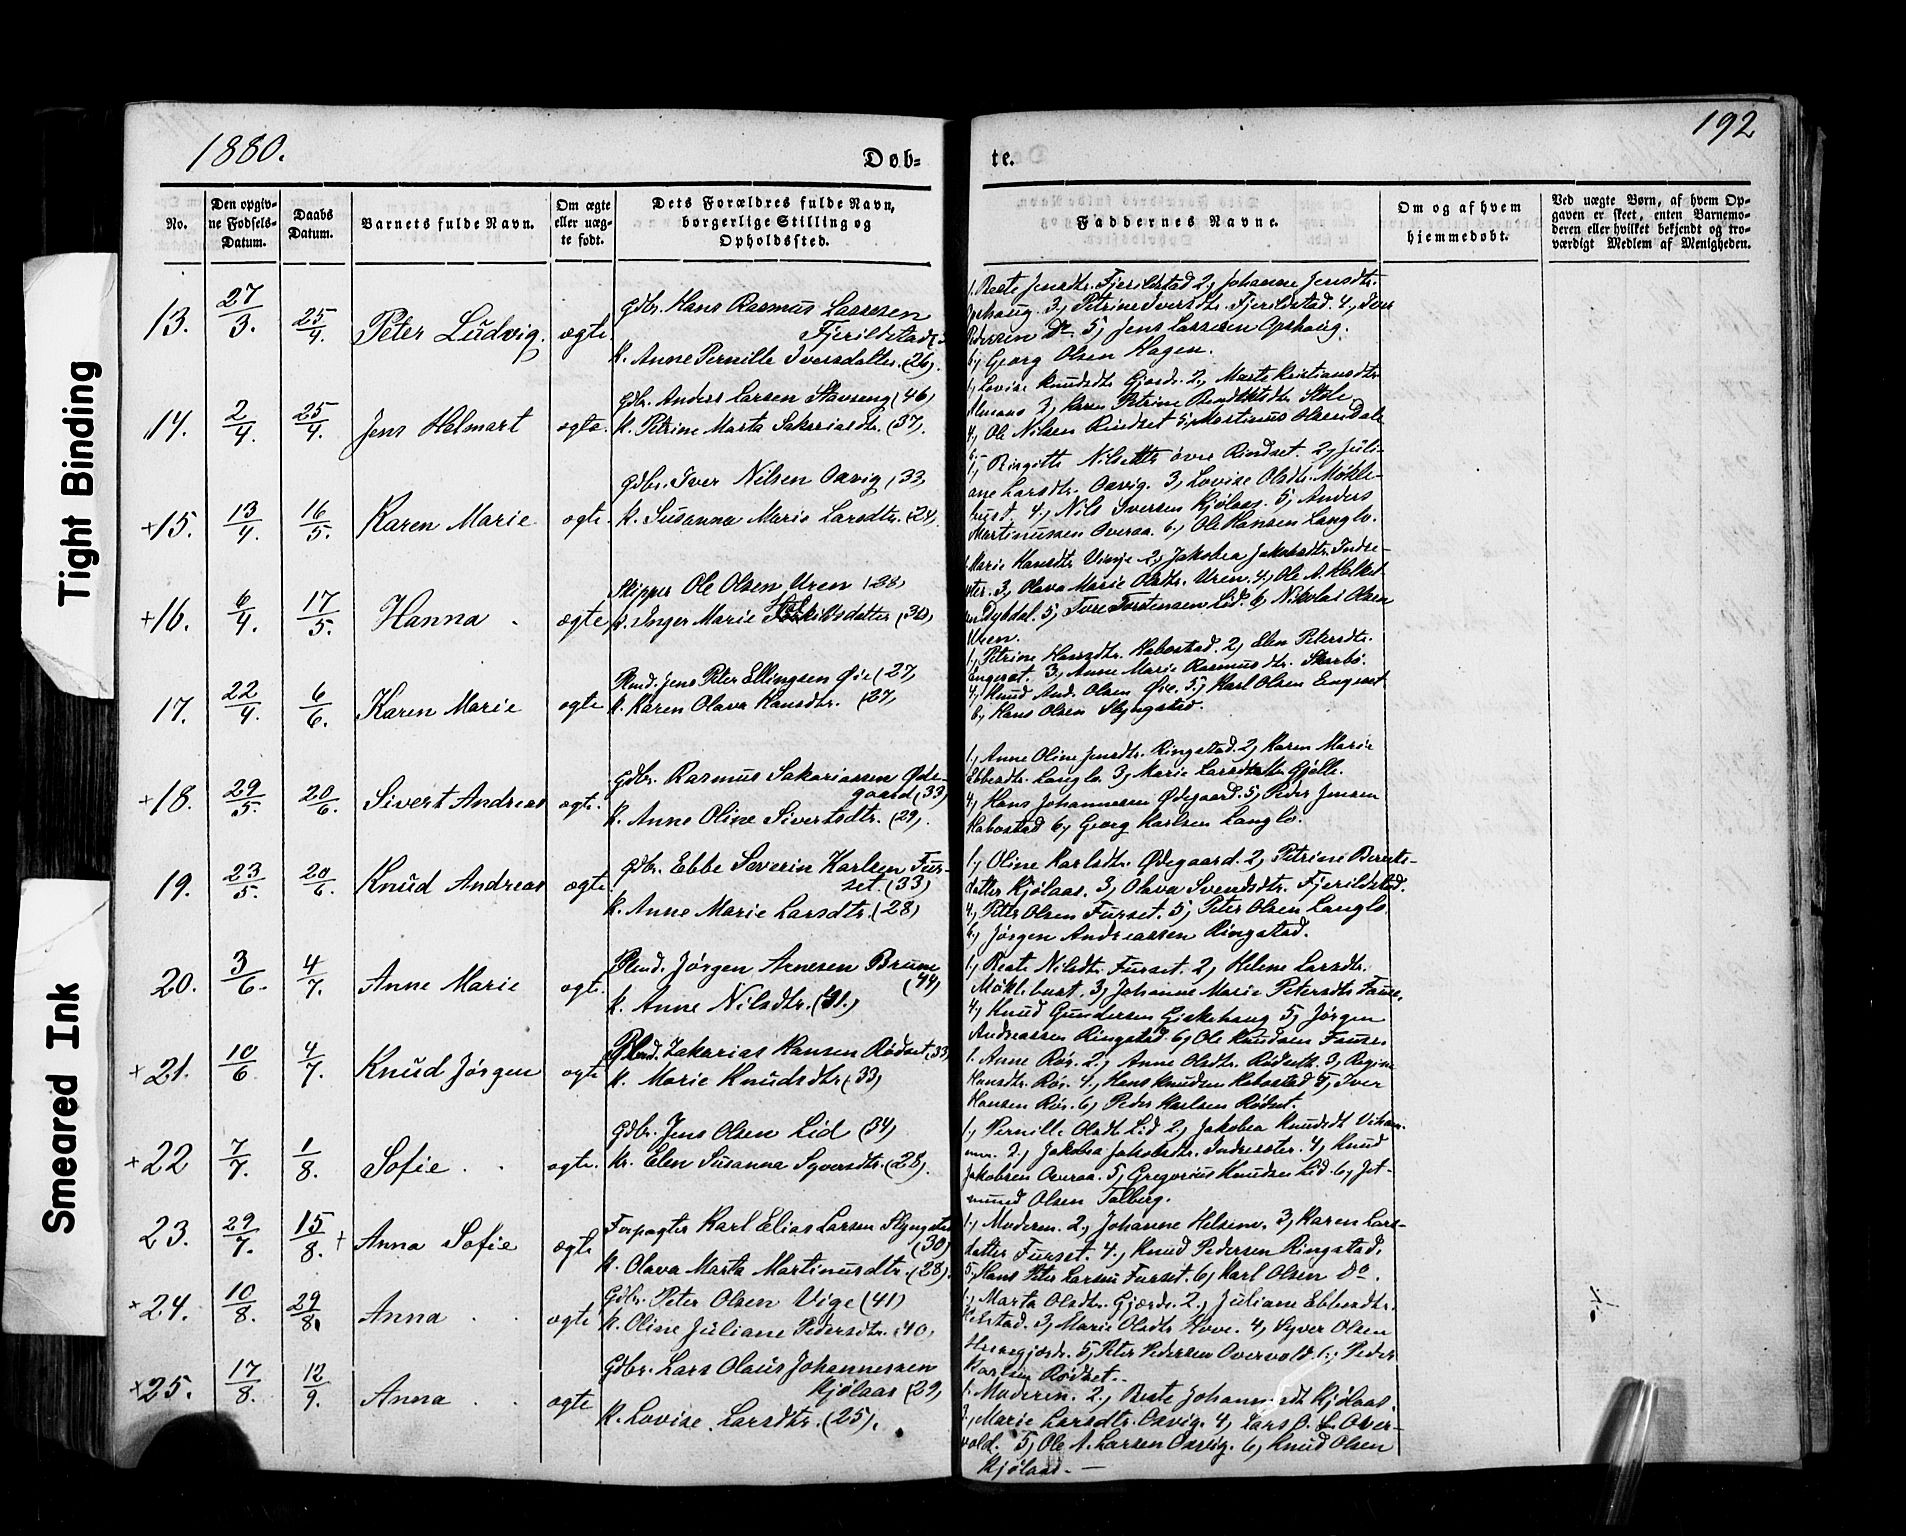 1880.
Døb=
te.
192
Tight Binding
Smeared Ink
No.
Den opgiv-
ne Fødsels-
Datum.
Daabs
Datum.
Barnets fulde Navn.
Om ægte
eller uæg-
te født.
Dets Forældres fulde Navn,
borgerlige Stilling og
Opholdssted.
Faddernes Navne.
Om og af hvem
hjemmedøbt.
Ved uægte Børn, af hvem Op-
gaven er skeet, enten Barnemo-
deren eller hvilket bekjendt og tro-
værdigt Medlem af Menigheden.
13. 27/3. 25/4. Peter Ludvig. ægte.
Gdbr. Hans Rasmus Lassesen
Fjerildstad
k. Anne Pernille Iversdatter. (26).
1, Beate Jensdtr. Fjerildstad 2, Johanne Jensdtr.
Opshaug. 3, Petrine Iversdtr. Fjerildstad. 4, Jens
Pedersen Do. 5, Jens Lassesen Opshaug.
6, Georg Olsen Hagen.
14. 2/4. 25/4. Jens Helmart ægte.
Gdbr. Anders Larsen Stavseng (46)
k. Petrine Marta Sakariasdtr. (37).
1, Lovise Knudsdtr. Gjorde. 2, Marte Kristiansdtr.
3, Karen Petrine
4, Ole Nilsen Rindset 5, Martinus Olsen Dale
6,
+15. 13/4. 16/5. Karen Marie ægte.
Gdbr. Iver Nilsen Osvig (33
k. Susanna Marie Larsdtr. (24).
1, Birgitte Nilsdtr. øvre Rindset. 2, Juli-
ane Larsdtr. Osvig. 3, Lovise Olsdtr. Møkle-
bust. 4, Nils Iversen Kjølaas. 5, Anders
Martinussen Overaa. 6, Ole Hansen Langlo.
+16. 6/4. 17/5. Hanna ægte
Skipper Ole Olsen Uren (28)
k. Inger Marie (30)
Marie Hansdtr. 2, Jakobea Jakobsdtr. Indre-
3, Olava Marie Olsdtr. Uren. 4, Ole A.
Dybdal. 5, Tore Torstensen Lid. 6, Nikolai Olsen
Uren.
17. 22/4. 6/6. Karen Marie ægte
Jens Peter Ellingsen Øie (27)
k. Karen Olava Hansdtr. (27)
1, Petrine Hansdtr. Habostad. 2, Elen Petersdtr.
Engeset. 3, Anne Marie Rasmusdtr. Skarbø.
4, Knud And. Olsen Øie. 5, Karl Olsen Engeset
6, Hans Olsen Slyngstad.
+18. 29/5. 20/6. Sivert Andreas ægte.
Gdbr. Rasmus Sakariassen Øde-
gaard (33)
k. Anne Oline Sivertsdtr. (29).
1, Anne Oline Jensdtr. Ringstad. 2, Karen Marie
Ebbesdtr. Langlo. 3, Marie Larsdatter Gjølle.
4, Hans Johannesen Ødegaard. 5, Peder Jensen
Habostad 6, Georg Karlsen Langlo.
19. 23/5. 20/6. Knud Andreas ægte
Gdbr. Ebbe Severin Karlsen Fur-
set. (33)
k. Anne Marie Larsdtr. (28)
1, Oline Karlsdtr. Ødegaard. 2, Petrine Bernts-
datter Kjølaas. 3, Olava Svendsdtr. Fjerildstad.
4, Peter Olsen Furset. 5, Peter Olsen Langlo
6, Jørgen Andreassen Ringstad.
20. 3/6. 4/7. Anne Marie ægte.
Jørgen Arnesen Brune
(44)
k. Anne Nilsdtr. (41.)
1, Beate Nilsdtr. Furset. 2, Helene Larsdtr.
Møklebust. 3, Johanne Marie Petersdtr. Fause.
4, Knud Gundersen Giskehaug 5, Jørgen
Andreassen Ringstad. 6, Ole Knudsen Fausen
+21. 10/6. 4/7. Knud Jørgen ægte
Zakarias Hansen Rødset (33)
k. Marie Knudsdtr. (33)
1. Anne Rør. 2, Anne Olsdtr. Rødseth. 3, Regine
Hansdtr. Rør. 4, Hans Knudsen Habostad 5, Iver
Hansen Rør. 6, Peder Karlsen Rødset.
+22 7/7. 1/8. Sofie. ægte.
Gdbr. Jens Olsen Lid (34)
k. Elen Susanna Syversdtr. (28).
1, Pernille Olsdtr. Lid 2, Jakobea Knudsdt
3, Jakobea Jakobsdtr. Indresæter. 4, Knud
Jakobsen Overaa. 5, Gregorius Knudsen Lid. 6, Jet-
mund Olsen Talberg.
23. 29/7. 15/8. + Anna Sofie ægte
Forpagter Karl Elias Larsen Slyngstad
(30)
k. Olava Marta Martinusdtr. (28).
1, Moderen. 2, Johanne Helsem. 3, Karen Lars-
datter Furset. 4, Knud Pedersen Ringstad.
5, Hans Peter Larsen Furset. 6, Karl Olsen Do.
+24. 10/8. 29/8. Anna ægte
Gdbr. Peter Olsen Vige (41)
k. Oline Juliane Pedersdtr. (40)
1, Marta Olsdtr. Gjærde. 2, Juliane Ebbesdtr.
3, Marie Olsdtr. Hove. 4, Syver Olsen
5, Peter Pedersen Overvold. 6, Peder
Karlsen Rødset.
+25. 17/8. 12/9. Anna ægte
Gdbr. Lars Olaus Johannessen
Kjølaas (29)
k. Lovise Larsdtr. (25).
1. Moderen. 2, Beate Johannesdt Kjølaas.
3, Marie Larsdtr. Osvig. 4, Lars O. L. Over-
vold. 5, Ole A. Larsen Osvig. 6, Knud Olsen
Kjølaas. —